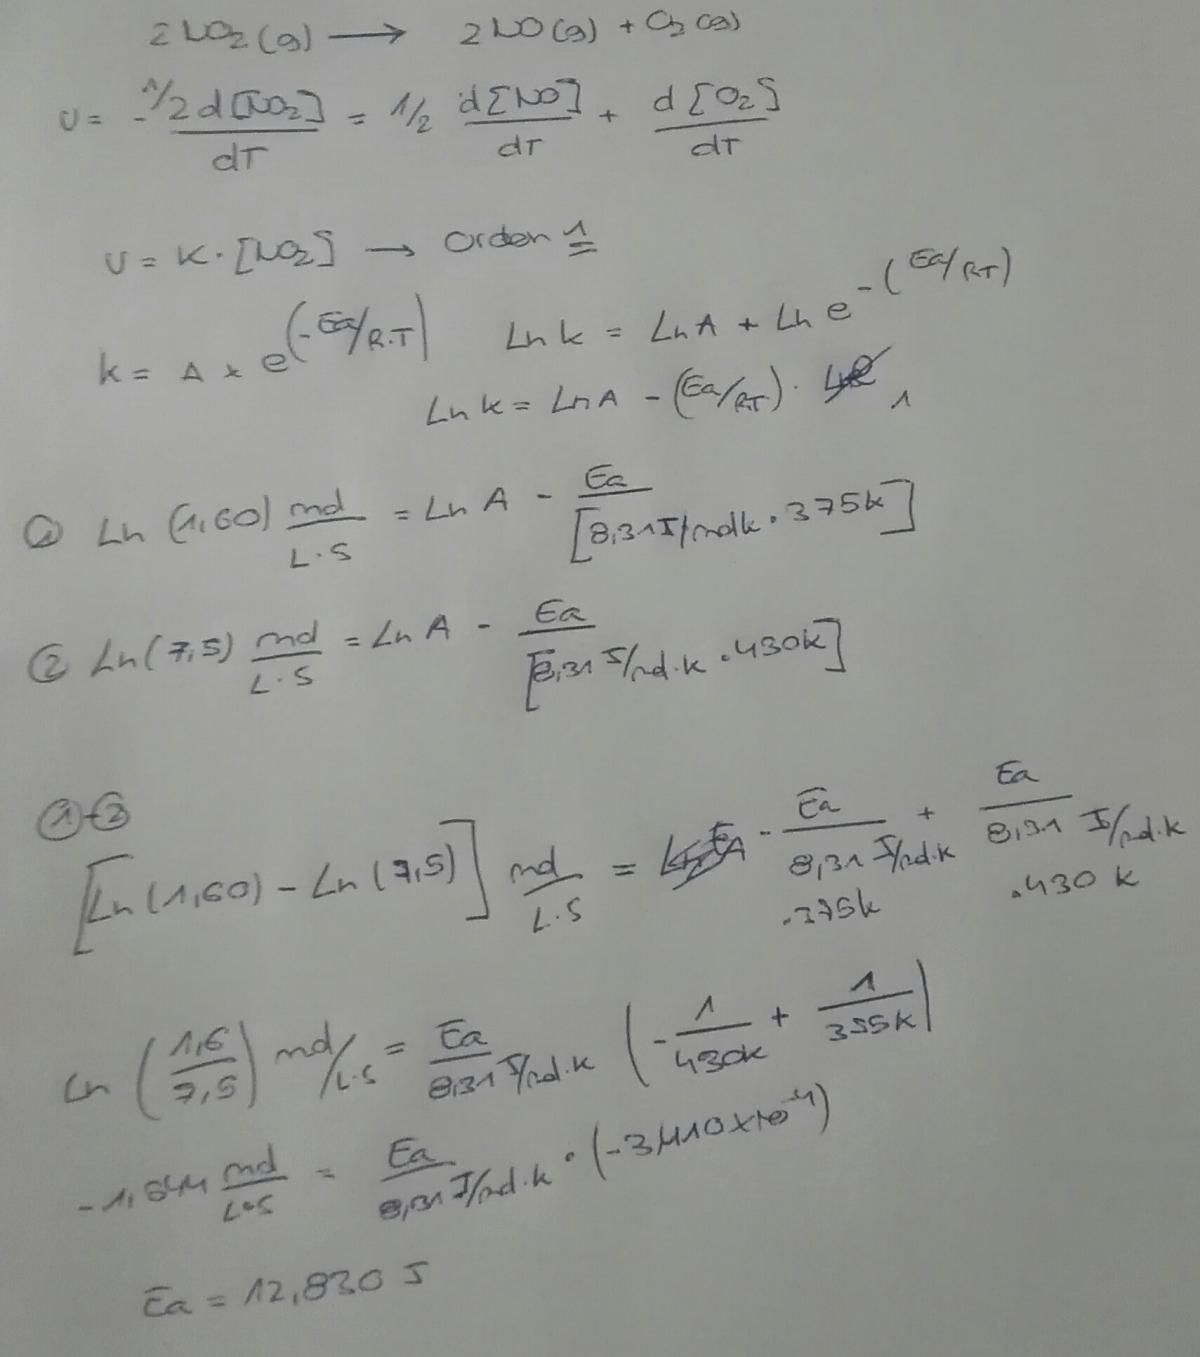 2NO₂(g) → 2NO(g) + O₂(g)
v = -1/2 d[NO₂]/dT = 1/2 d[NO]/dT + d[O₂]/dT
v = k·[NO₂] → orden 1
k = A x e^(-Ea/R.T) Ln k = Ln A + Ln e^-(Ea/RT)
Ln k = Ln A - (Ea/RT) · 1
① Ln (1,60) mol/L·s = Ln A - Ea/[8,31 J/mol k · 375k]
② Ln (7,5) mol/L·s = Ln A - Ea/[8,31 J/mol·k · 430k]
①-②
[Ln (1,60) - Ln (7,5)] mol/L·s = - Ea/8,31 J/mol·k ·375k + Ea/8,31 J/mol·k ·430 k
Ln (1,6/7,5) mol/L·s = Ea/8,31 J/mol·k (-1/430k + 1/355k)
-1,544 mol/L·s = Ea/8,31 J/mol·k · (-3,410x10⁻⁴)
Ea = 12,830 J